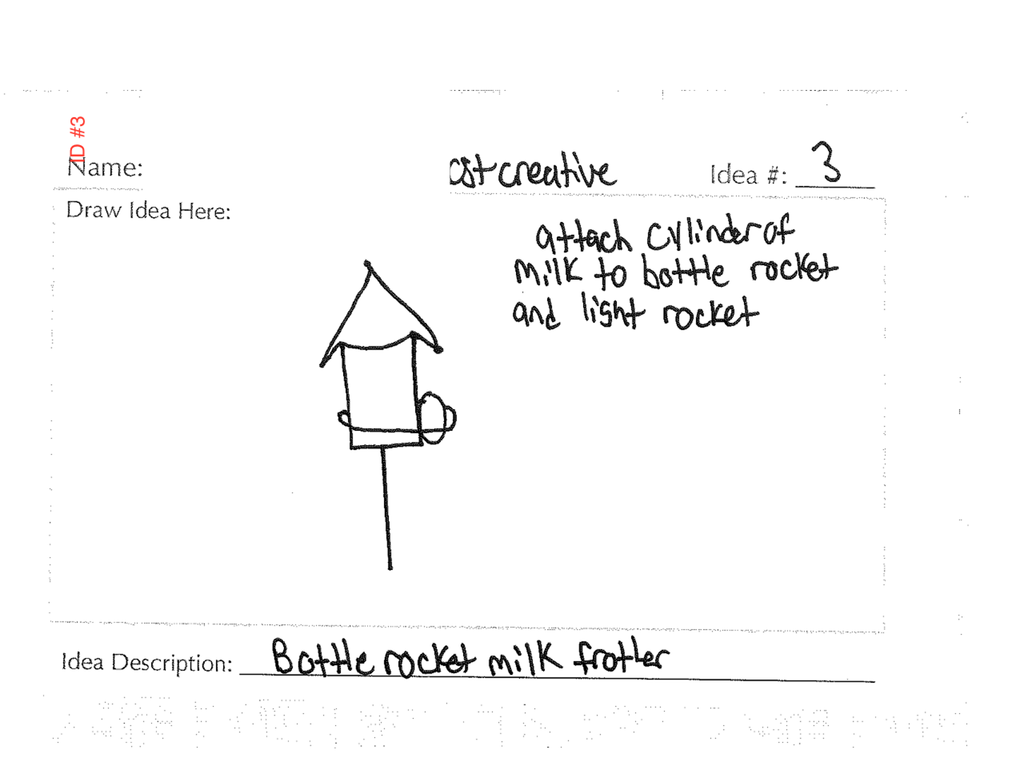 ID #3
Name:
cst creative
Idea #: 3
Draw Idea Here:
attach cylinder of
milk to bottle rocket
and light rocket
Idea Description: Bottle rocket milk frother